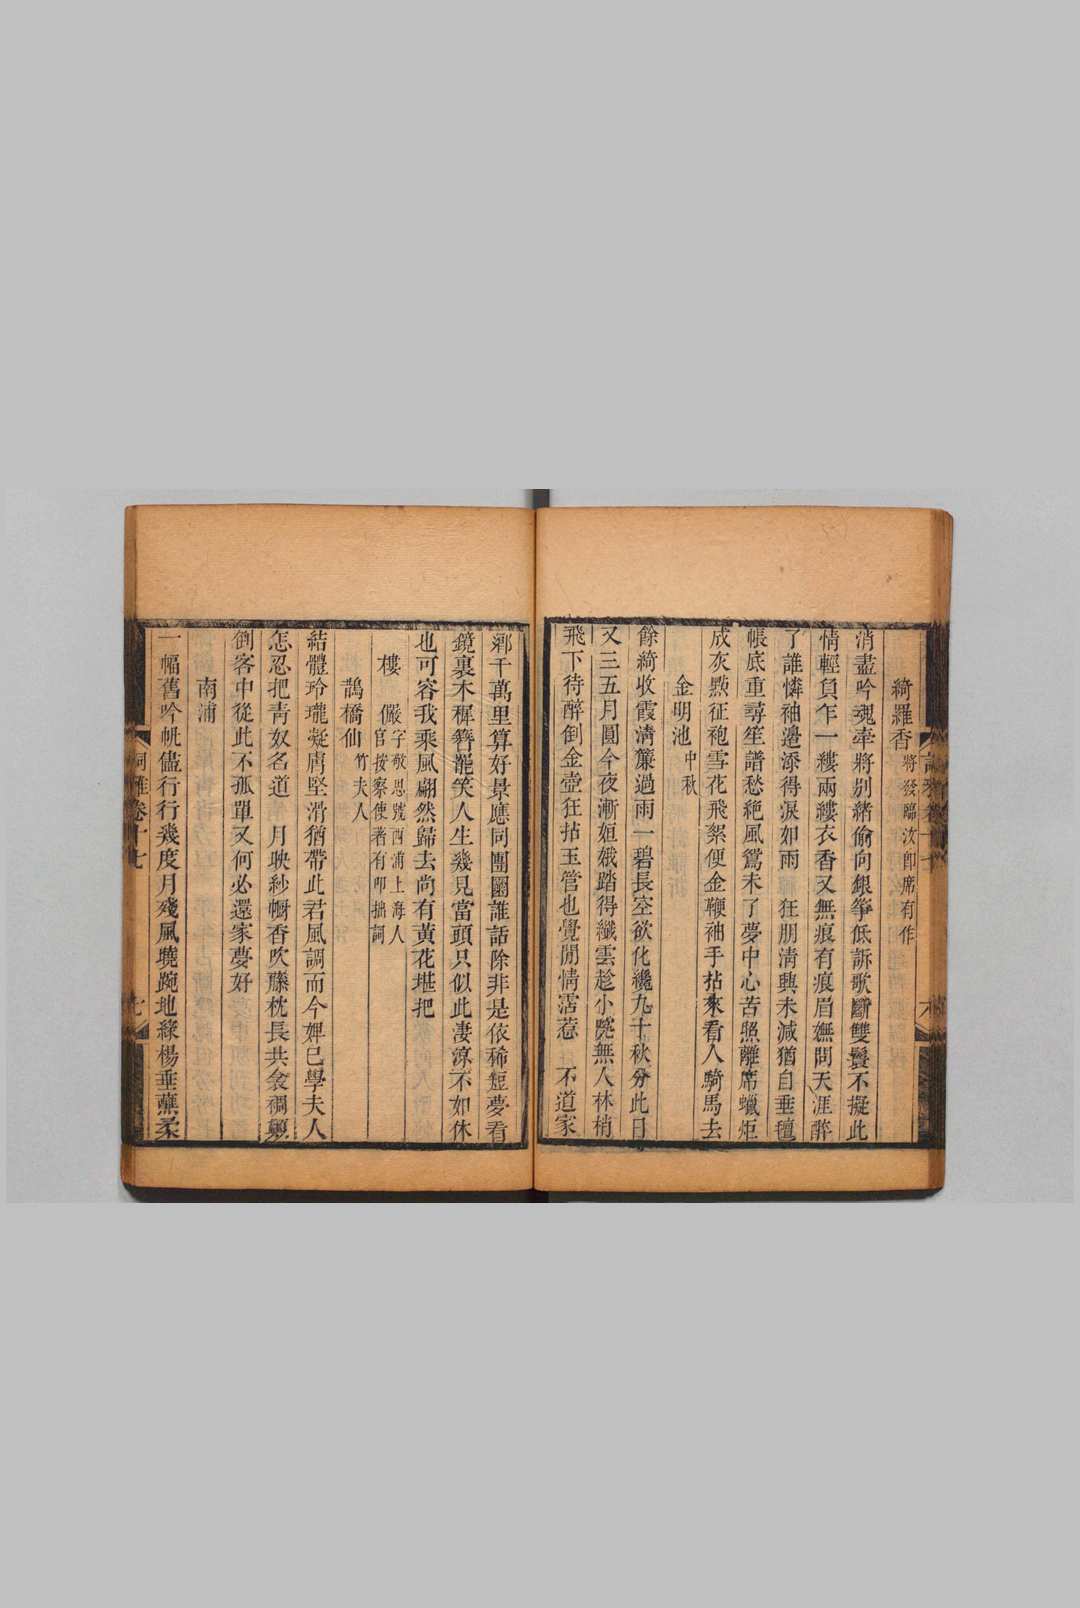 綺羅香將發臨汝卽席有作
消盡吟魂牽將別緒偷向銀箏低訴歌斷雙鬟不擬此
情輕負乍一縷兩縷衣香又無痕有痕眉嫵問天涯醉
了誰憐袖邊添得淚如雨 狂朋清興未減猶自垂氊
帳底重尋笙譜愁絶風鴛未了夢中心苦照離席蠟炬
成灰㸃征袍雪花飛絮便金鞭袖手拈來看人騎馬去
金明池中秋
餘綺收霞清簾過雨一碧長空欲化纔九十秋分此日
又三五月圓今夜漸姮娥踏得纖雲趁小院無人林梢
飛下待醉倒金壺狂拈玉管也覺閒情霑惹 不道家
鄉千萬里算好景應同團圞誰話除非是依稀短夢看
鏡裏木樨簪罷笑人生幾見當頭只似此凄涼不如休
也可容我乘風翩然歸去尚有黃花堪把
樓儼字敬思號西浦上海人
官按察使著有叩拙詞
鵲橋仙竹夫人
結體玲瓏凝膚堅滑猶帶此君風調而今婢已學夫人
怎忍把靑奴名道 月映紗幮香吹藤枕長共衾裯顚
倒客中從此不孤單又何必還家夢好
南浦
一幅舊吟㡆儘行行幾度月殘風曉踠地綠楊垂蘸柔
詞雅卷十七
七
詞雅卷十七
六